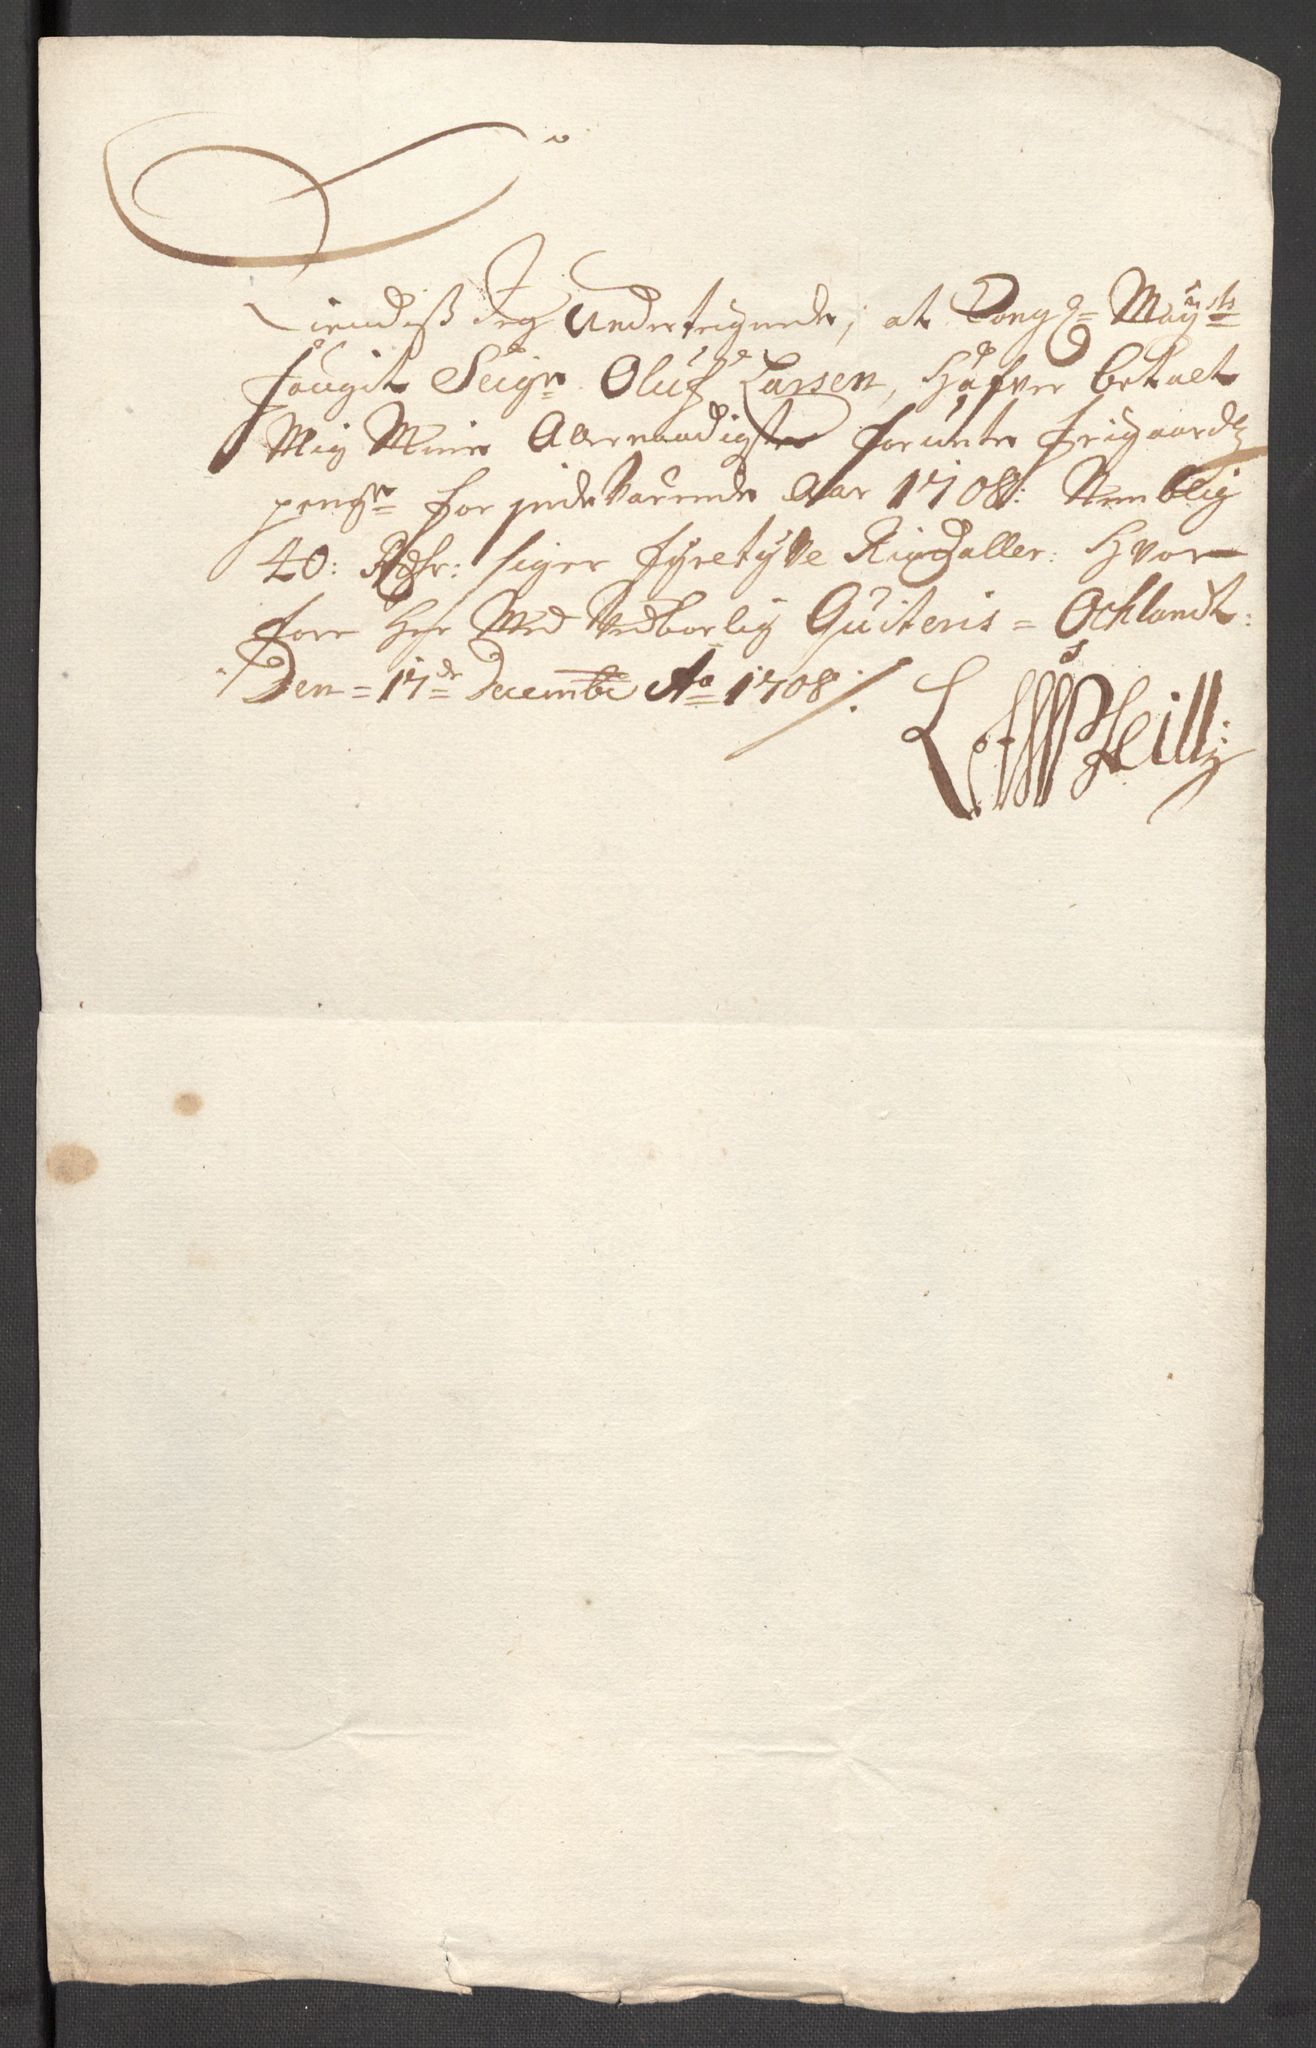 Kiendiß Jeg Underteignede, at Kongl= Mayts
fougit Seigr Oluf Larsen, Hafver betalt
Mig Min Allernaadigste forunte frigaards
penge for inde Varende Aar 1708: Nemblig
40: Rdlr: siger fyretyve Rixdaller: Hvor
fore Her Med Vedborlig Quiteris = Ochlandt:
Den = 17de Decembr Ao 1708 /: